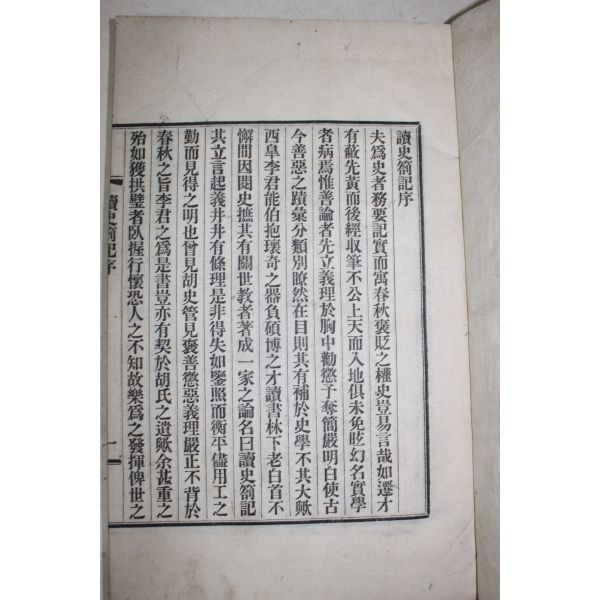 讀史劄記序
夫爲史者務要記實而寓春秋褒貶之權史豈易言哉如遷才
有蔽先黃而後經收筆不公上天而入地俱未免眩幻名實學
者病焉惟善論者先立義理於胸中勸懲予奪簡嚴明白使古
今善惡之蹟彙分類別瞭然在目則其有補於史學不其大歟
西皐李君能伯抱瓌奇之器負碩博之才讀書林下老白首不
懈間因閱史摭其有關世敎者著成一家之論名曰讀史劄記
其立言起義井井有條理是非得失如鑒照而衡平儘用工之
勤而見得之明也曾見胡史管見褒善懲惡義理嚴正不背於
春秋之旨李君之爲是書豈亦有契於胡氏之遺歟余甚重之
殆如獲拱璧者臥握行懷恐人之不知故樂爲之發揮俾世之
讀史劄記序
一